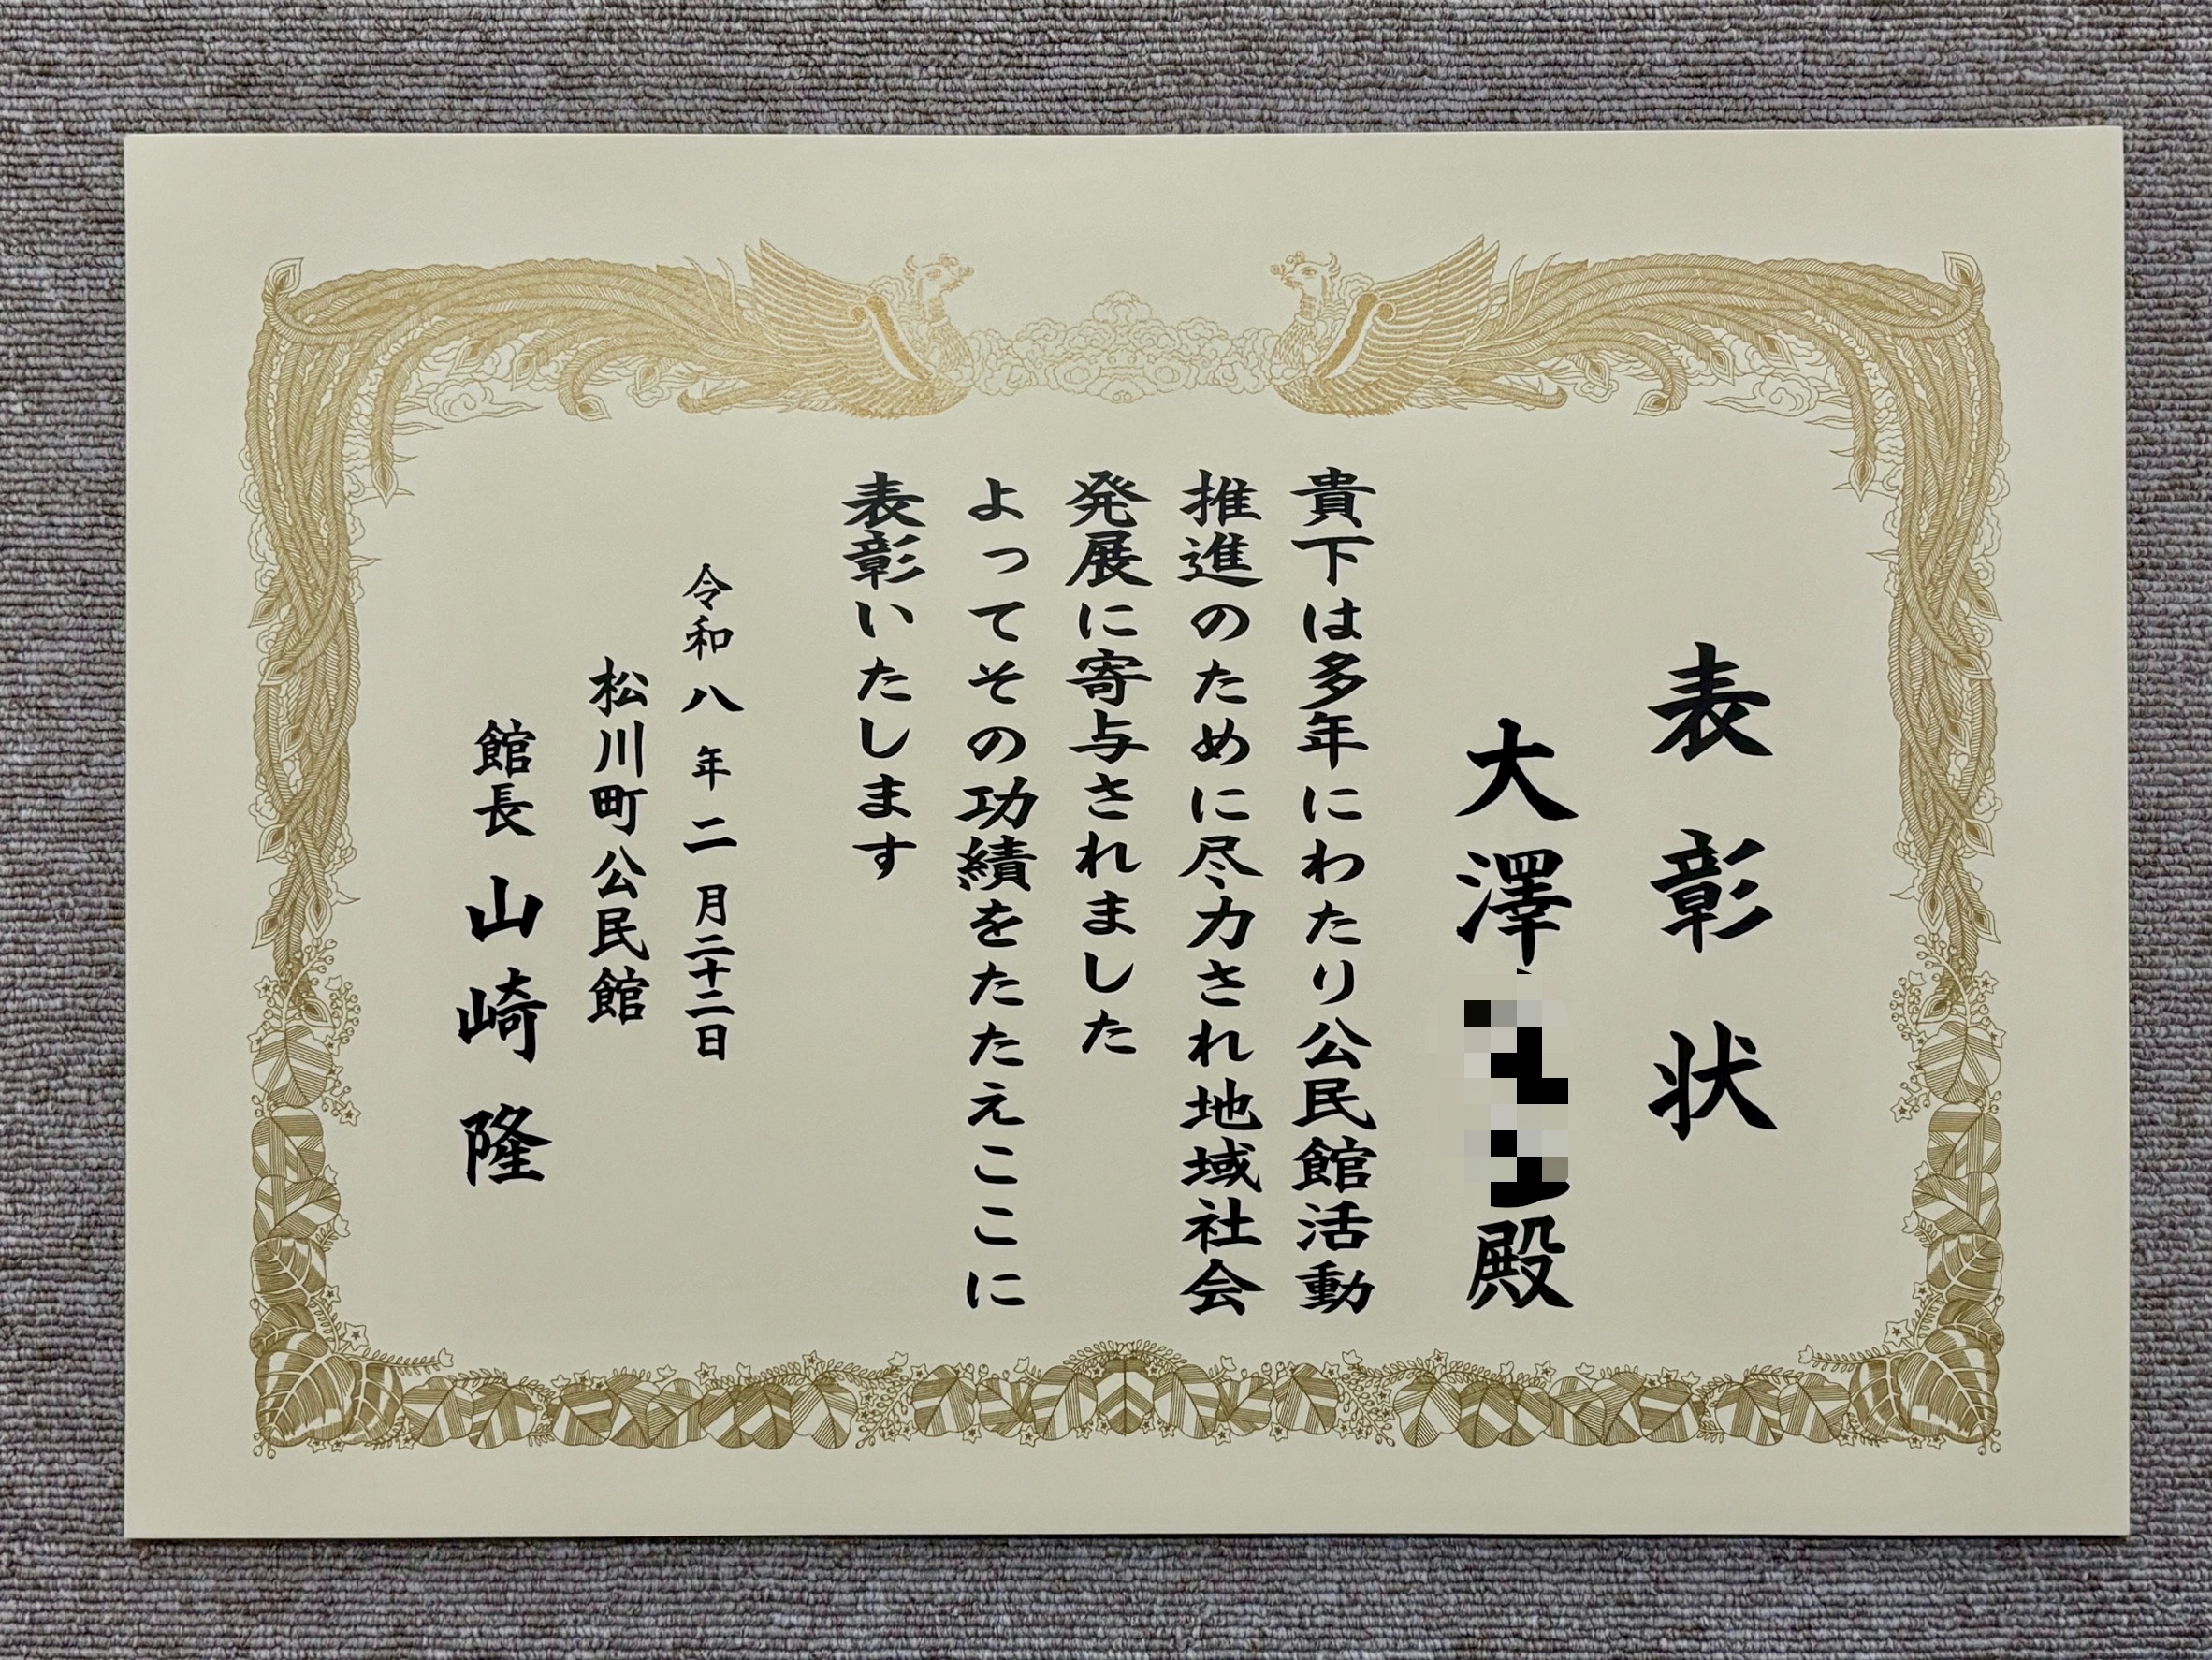 表彰状
大澤 殿
貴下は多年にわたり公民館活動
推進のために尽力され地域社会
発展に寄与されました
よってその功績をたたえここに
表彰いたします
令和八年二月二十二日
松川町公民館
館長 山崎隆